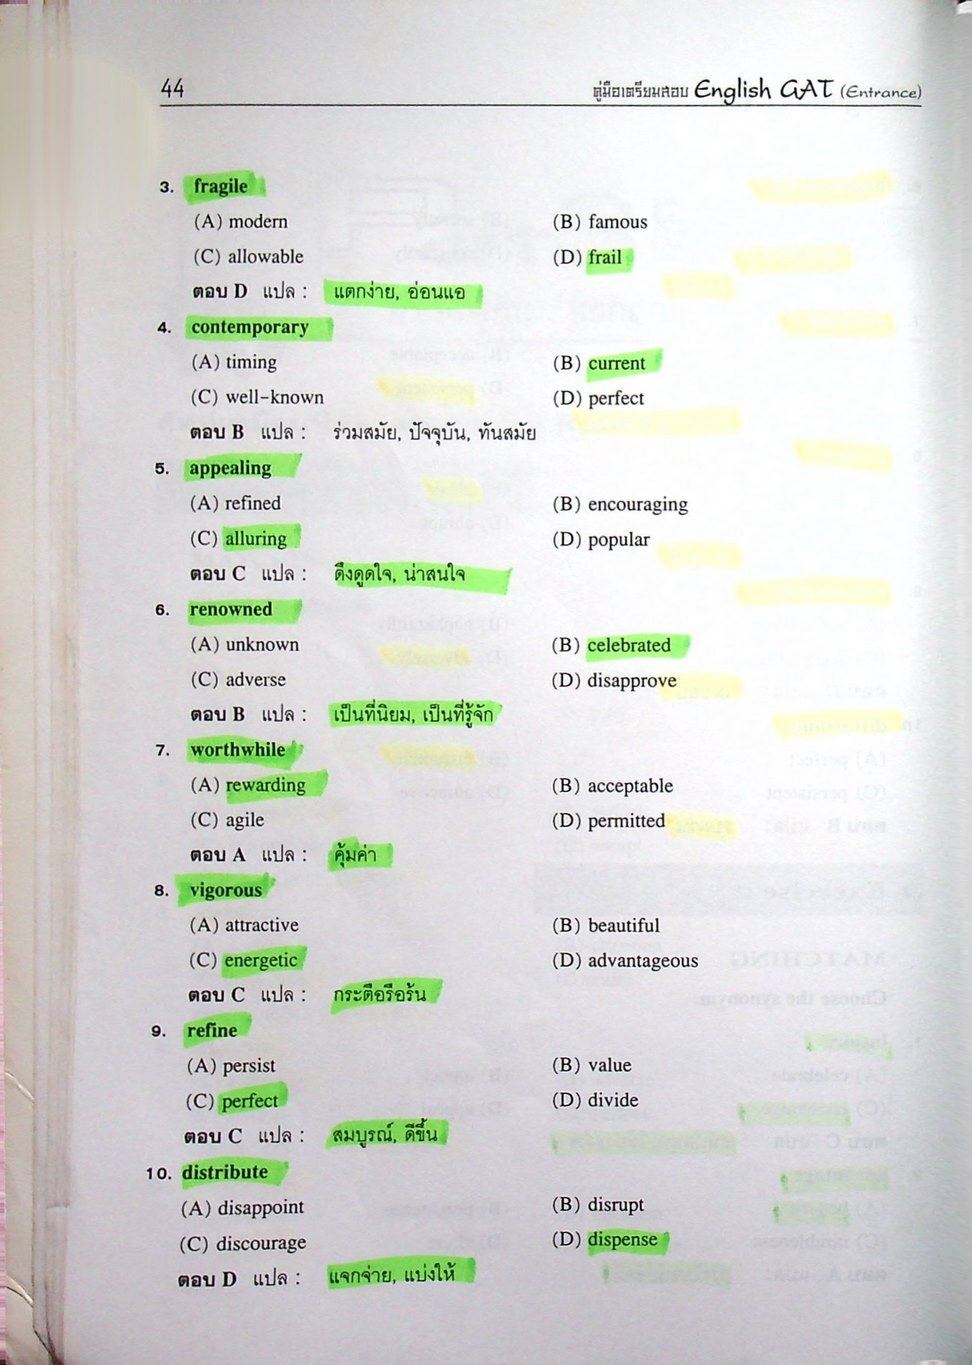 44 คู่มือเตรียมสอบ English GAT (Entrance)
3. fragile
(A) modern (B) famous
(C) allowable (D) frail
ตอบ D แปล : แตกง่าย, อ่อนแอ
4. contemporary
(A) timing (B) current
(C) well-known (D) perfect
ตอบ B แปล : ร่วมสมัย, ปัจจุบัน, ทันสมัย
5. appealing
(A) refined (B) encouraging
(C) alluring (D) popular
ตอบ C แปล : ดึงดูดใจ, น่าสนใจ
6. renowned
(A) unknown (B) celebrated
(C) adverse (D) disapprove
ตอบ B แปล : เป็นที่นิยม, เป็นที่รู้จัก
7. worthwhile
(A) rewarding (B) acceptable
(C) agile (D) permitted
ตอบ A แปล : คุ้มค่า
8. vigorous
(A) attractive (B) beautiful
(C) energetic (D) advantageous
ตอบ C แปล : กระตือรือร้น
9. refine
(A) persist (B) value
(C) perfect (D) divide
ตอบ C แปล : สมบูรณ์, ดีขึ้น
10. distribute
(A) disappoint (B) disrupt
(C) discourage (D) dispense
ตอบ D แปล : แจกจ่าย, แบ่งให้